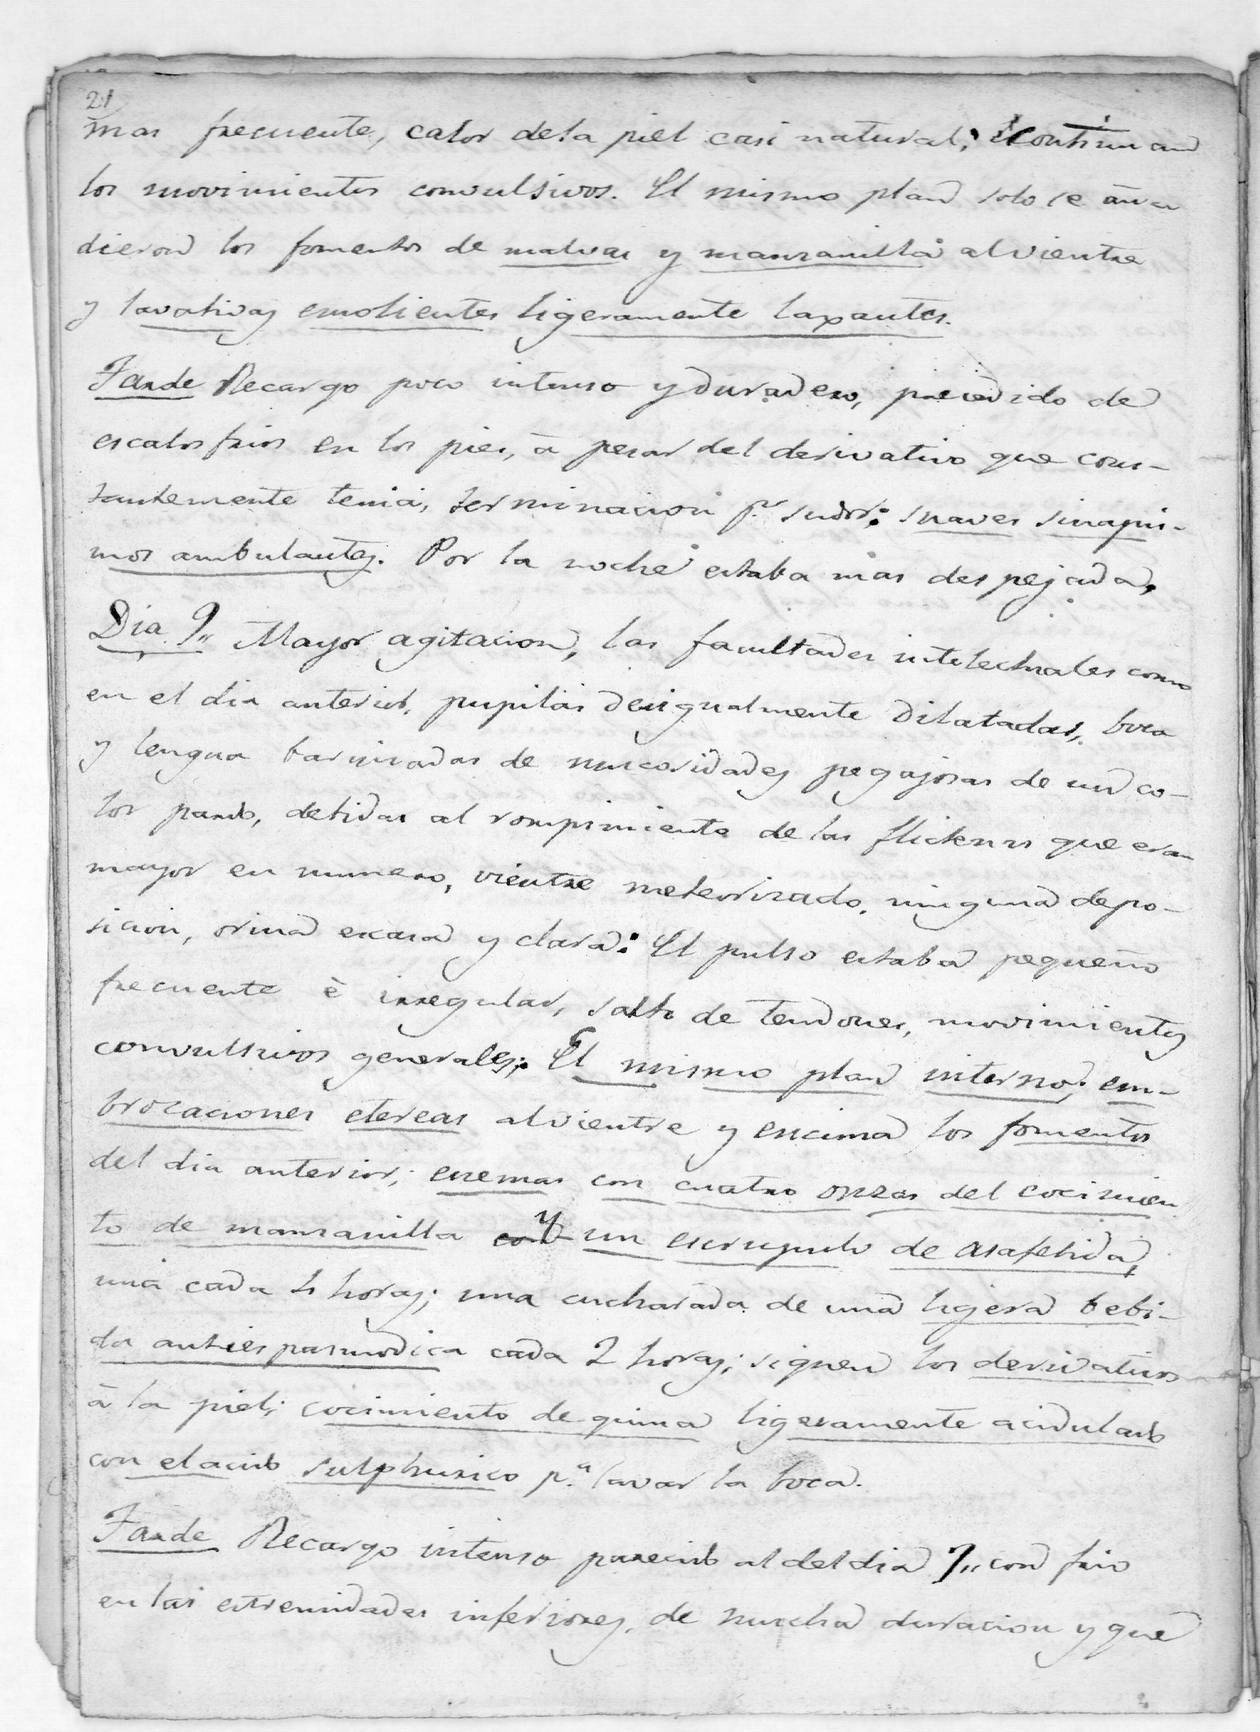 21
mas frecuente, calor dela piel casi natural; continuan
los movimientos convulsivos. El mismo plan solo se aña
dieron los fomentos de malvas y manzanilla al vientre
y lavativas emolientes ligeramente laxantes.
Tarde Recargo poco intenso y duradero, precedido de
escalosfrios en los pies, à pesar del derivativo que cons-
tantemente tenia, terminacion pr. sudor: suaves sinapis-
mos ambulantes. Por la noche estaba mas despejada.
Dia 9,, Mayor agitacion, las facultades intelectuales como
en el dia anterior, pupilas desigualmente dilatadas, boca
y lengua barnizadas de mucosidades pegajosas de un co-
lor pardo, debidas al rompimiento de las flictenas que eran
mayor en numero, vientre meteorizado, ninguna depo-
sicion, orina escasa y clara: El pulso estaba pequeño
frecuente è irregular, salto de tendones, movimientos
convulsivos generales; El mismo plan interno; em-
brocaciones etereas al vientre y encima los fomentos
del dia anterior; enemas con cuatro onzas del cocimien
to de manzanilla con y un escrupulo de asafetida,
una cada 4 horas; una cucharada de una ligera bebi-
da antiespasmodica cada 2 horas; siguen los derivativos
à la piel; cocimiento de quina ligeramente acidulado
con el acido sulphurico pa. lavar la boca.
Tarde Recargo intenso parecido al del dia 7,, con frio
en las estremidades inferiores, de mucha duracion y que